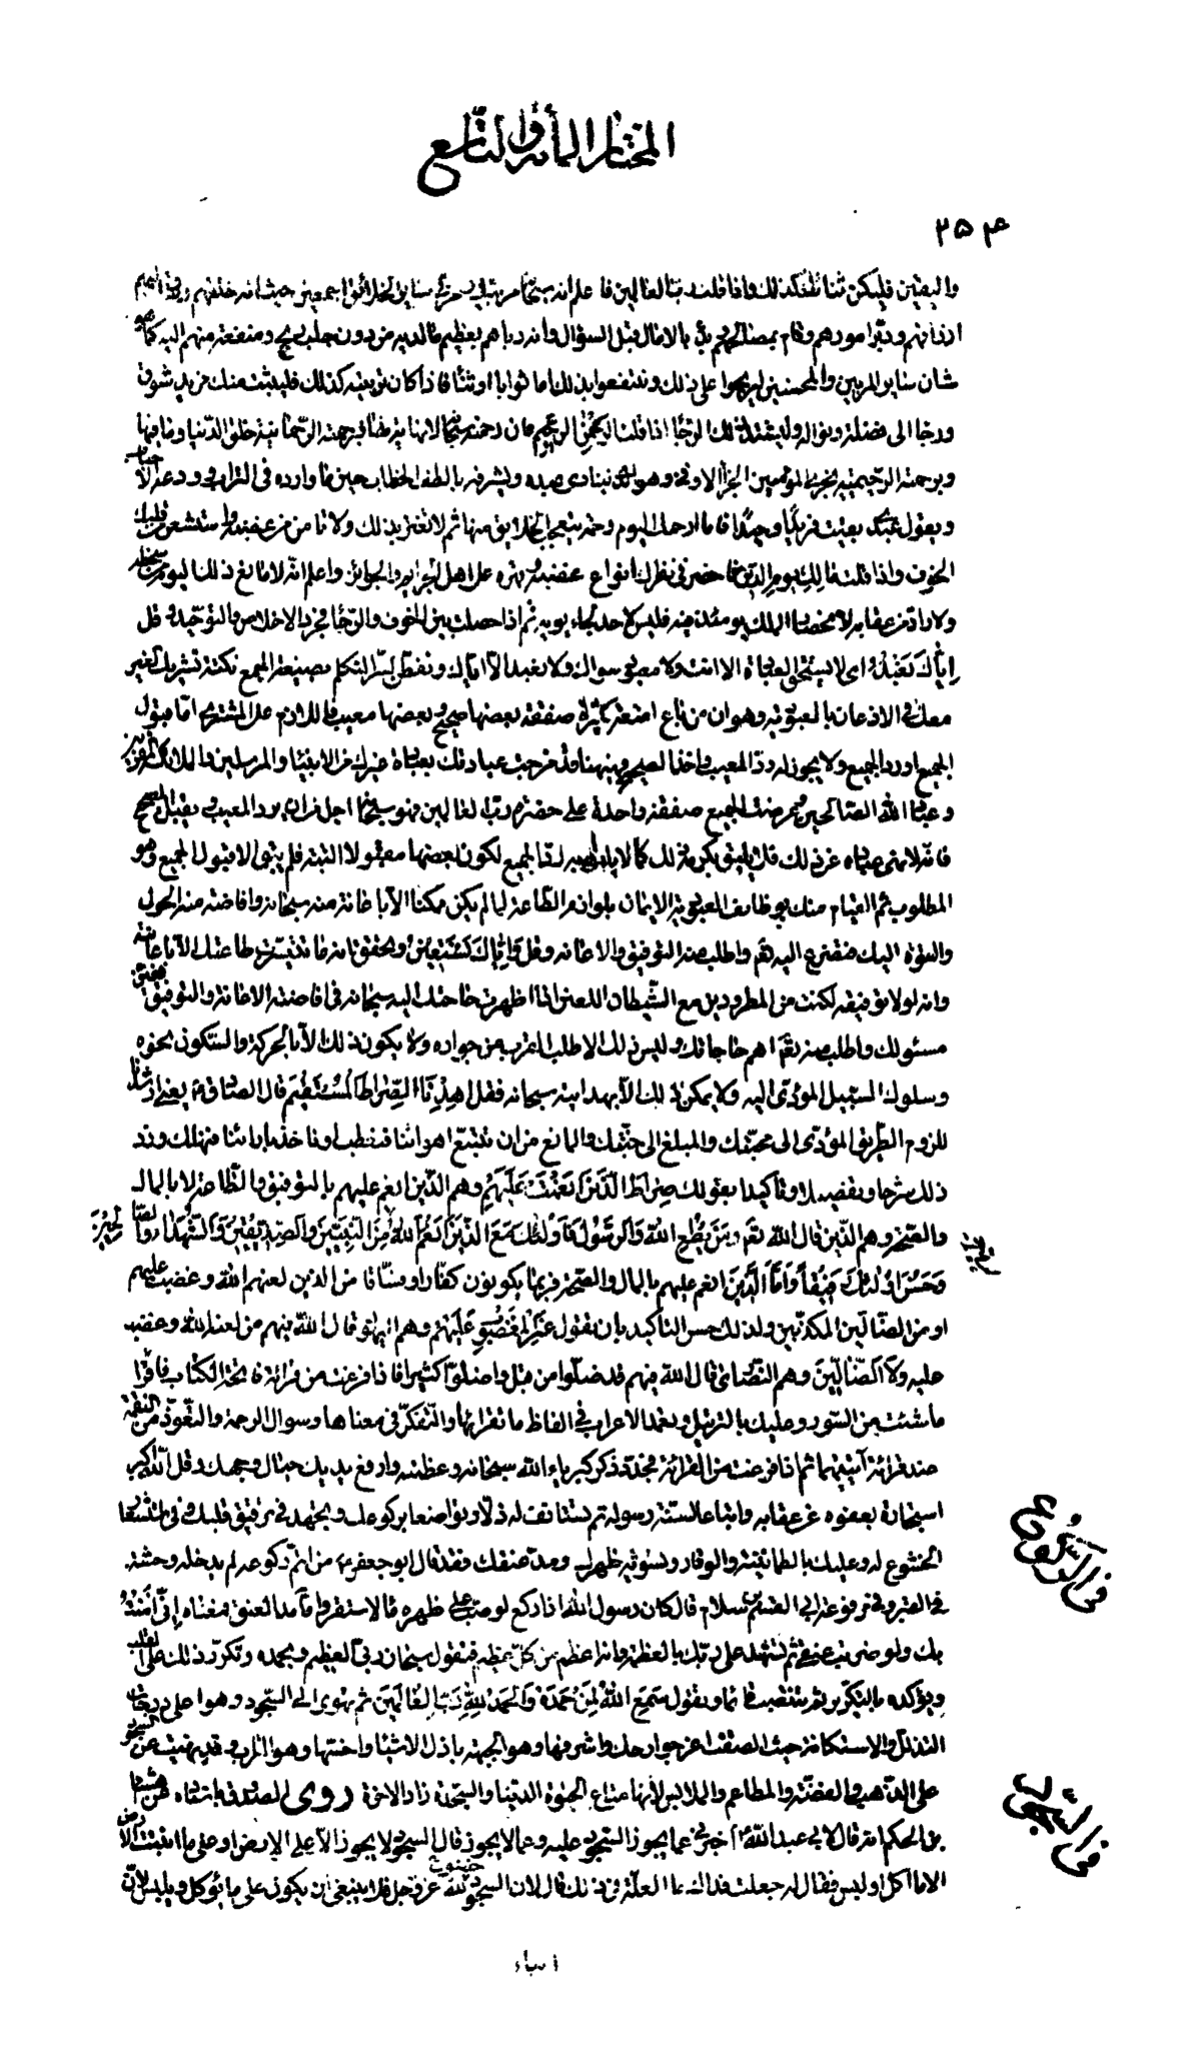 المختار المأة والتاسع
٢٥٤
واليقين فليكن ثناؤك كذلك واذا قلت رب العالمين فاعلم انه سبحانه مربيك ومربي ساير الخلائق اجمعين حيث انه خلقهم وقدر لهم
ارزاقهم ودبر امورهم وقام بمصالحهم بالامال قبل السؤال وانه رباهم بعظيم ما لديه من دون جلب ومنفعة منهم اليه كما هو
شان ساير المربين والمحسنين ليربحوا على ذلك وينتفعوا بذلك اما ثوابا او ثناء فاذا كان تربيته كذلك فليبعث منك مزيد شوق
ورجا الى فضله ونواله وليشتد ذلك الرجا اذا قلت الرحمن الرحيم فان رحمته سبحانه لا نهاية لها فبرحمته الرحمانية خلق الدنيا وما فيها
وبرحمته الرحيمية يجزي المؤمنين الجزاء الاوفى وهو الذي ينادى عبده ويشرفه بالطف الخطاب حين ما وارده في التراب وودعه الاحباب
ويقول عبدي بقيت فريدا وحيدا فانا ارحمك اليوم رحمة يتعجب الخلايق منها ثم لا تغتر بذلك ولا تامن من غضبه واستشعر من قلبك
الخوف واذا قلت مالك يوم الدين فاحضر في نظرك انواع غضبه وقهره على اهل الجراير والجرائم واعلم انه لا مانع ذلك اليوم من سخطه
ولا راد من عقابه لانحصار الملك يومئذ فيه فليس لاحد لجاء يويه ثم اذا حصلت بين الخوف والرجا فجرد الاخلاص والتوحيد و قل
إياك نعبد اى لا يستحق العبادة الا انت ولا معبود سواك ولا نعبد الا اياك وتفطن لسر التكلم بصيغة الجمع نكتة تشريك الغير
معك في الاذعان بالعبودية وهو ان من باع امتعة كثيرة صفقة بعضها صحيح وبعضها معيب فاللازم على المشترى اما قبول
الجميع او رد الجميع ولا يجوز له رد المعيب واخذ الصحيح وههنا قد مزجت عبادتك بعبادة غيرك من الانبياء والمرسلين والملائكة المقربين
وعباد الله الصالحين وعرضت الجميع صفقة واحدة على حضرة رب العالمين فهو سبحانه اجل من ان يرد المعيب و يقبل الصحيح
فانه لا نهى عباده عن ذلك فلا يليق بكرمه ذلك كما لا يليق به رد الجميع لكون بعضها مقبولا البتة فلم يبق الا قبول الجميع وهو
المطلوب ثم القيام منك بوظايف العبودية الاتيان بلوازم الطاعة لما لم يكن ممكنا الا باعانة منه سبحانه وافاضته منه الحول
والقوة اليك فتضرع اليه تعالى واطلب منه التوفيق والاعانه وقل وإياك نستعين وتحقق انه ما تيسرت طاعتك الا باعانته
وانه لولا توفيقه لكنت من المطرودين مع الشيطان اللعين اذا اظهرت حاجتك اليه سبحانه في افاضته الاعانة والتوفيق فعين
مسئولك واطلب منه تعالى اهم حاجاتك وليس ذلك الا طلب القرب من جواره ولا يكون ذلك الا بالحركة والسكون نحوه
وسلوك السبيل المؤدى اليه ولا يمكن ذلك الا بهدايته سبحانه فقل اهدنا الصراط المستقيم قال الصادق يعني ارشدنا
للزوم الطريق المؤدى الى محبتك والمبلغ الى جنتك والمانع من ان نتبع اهوائنا فنعطب او ناخذ بارائنا فنهلك وزد
ذلك شرحا وتفصيلا وتاكيدا بقولك صراط الذين انعمت عليهم وهم الذين انعم عليهم بالتوفيق والطاعة لا بالمال
والصحة وهم الذين قال الله تعالى ومن يطع الله والرسول فاولئك مع الذين انعم الله عليهم من النبيين والصديقين والشهداء والصالحين
وحسن اولئك رفيقا واما الذين انعم عليهم بالمال والصحة فربما يكونون كفارا وفساقا من الذين لعنهم الله وغضب عليهم
او من الضالين المكذبين ولذلك حسن التاكيد بان يقول غير المغضوب عليهم وهم اليهود قال الله فيهم من لعنه الله وغضب
عليه ولا الضالين وهم النصارى قال الله فيهم قد ضلوا من قبل واضلوا كثيرا فاذا فرغت من قرائة فاتحة الكتاب فاقرأ
ما شئت من السور وعليك بالترتيل وتعمد الاعراب في الفاظ ما تقرأ بها والتفكر في معناها وسؤال الرحمة والتعوذ من النقمة
عند قرائة آيتيهما ثم اذا فرغت من القرائة فجدد ذكر كبرياء الله سبحانه وعظمته وارفع يديك حيال وجهك وقل الله اكبر
استجارة بعفوه من عقابه واتباعا لسنة رسوله ثم تستانف له ذلا وتواضعا بركوعك وتجتهد في ترقيق قلبك وفي استشعار
الخشوع له وعليك بالطمأنينة والوقار وتسوية ظهرك ومد عنقك فقد قال ابو جعفر من اتم ركوعه لم يدخله وحشة
في القبر وفي مرفوعة ابي القسم بن سلام قال كان رسول الله اذا ركع لو صب على ظهره ماء لاستقر واما مد العنق فمعناه إنى آمنت
بك ولو ضربت عنقى ثم تشهد على ربك بالعظمة وانه اعظم من كل عظيم فتقول سبحان ربى العظيم وبحمده وتكرر ذلك على القلب
وتؤكده بالتكرير ثم تنتصب قائما وتقول سمع الله لمن حمده والحمد لله رب العالمين ثم تهوى الى السجود وهو اعلى درجات
التذلل والاستكانة حيث الصقت اعز جوارحك واشرفها وهو الجبهة باذل الاشياء واخسها وهو التراب وقد نهيت عن السجود
على الذهب والفضة والمطاعم والملابس لانها متاع الحيوة الدنيا والسجدة زاد الاخرة روى الصدوق باسناده عن هشام
بن الحكم انه قال لابي عبد الله اخبرنى عما يجوز السجود عليه وعما لا يجوز قال السجود لا يجوز الا على الارض او على ما انبتت الارض
الا ما اكل او لبس فقال له جعلت فداك ما العلة في ذلك قال لان السجود خضوع لله عز وجل فلا ينبغى ان يكون على ما يؤكل ويلبس لان
في الركوع
في السجود
ابناء